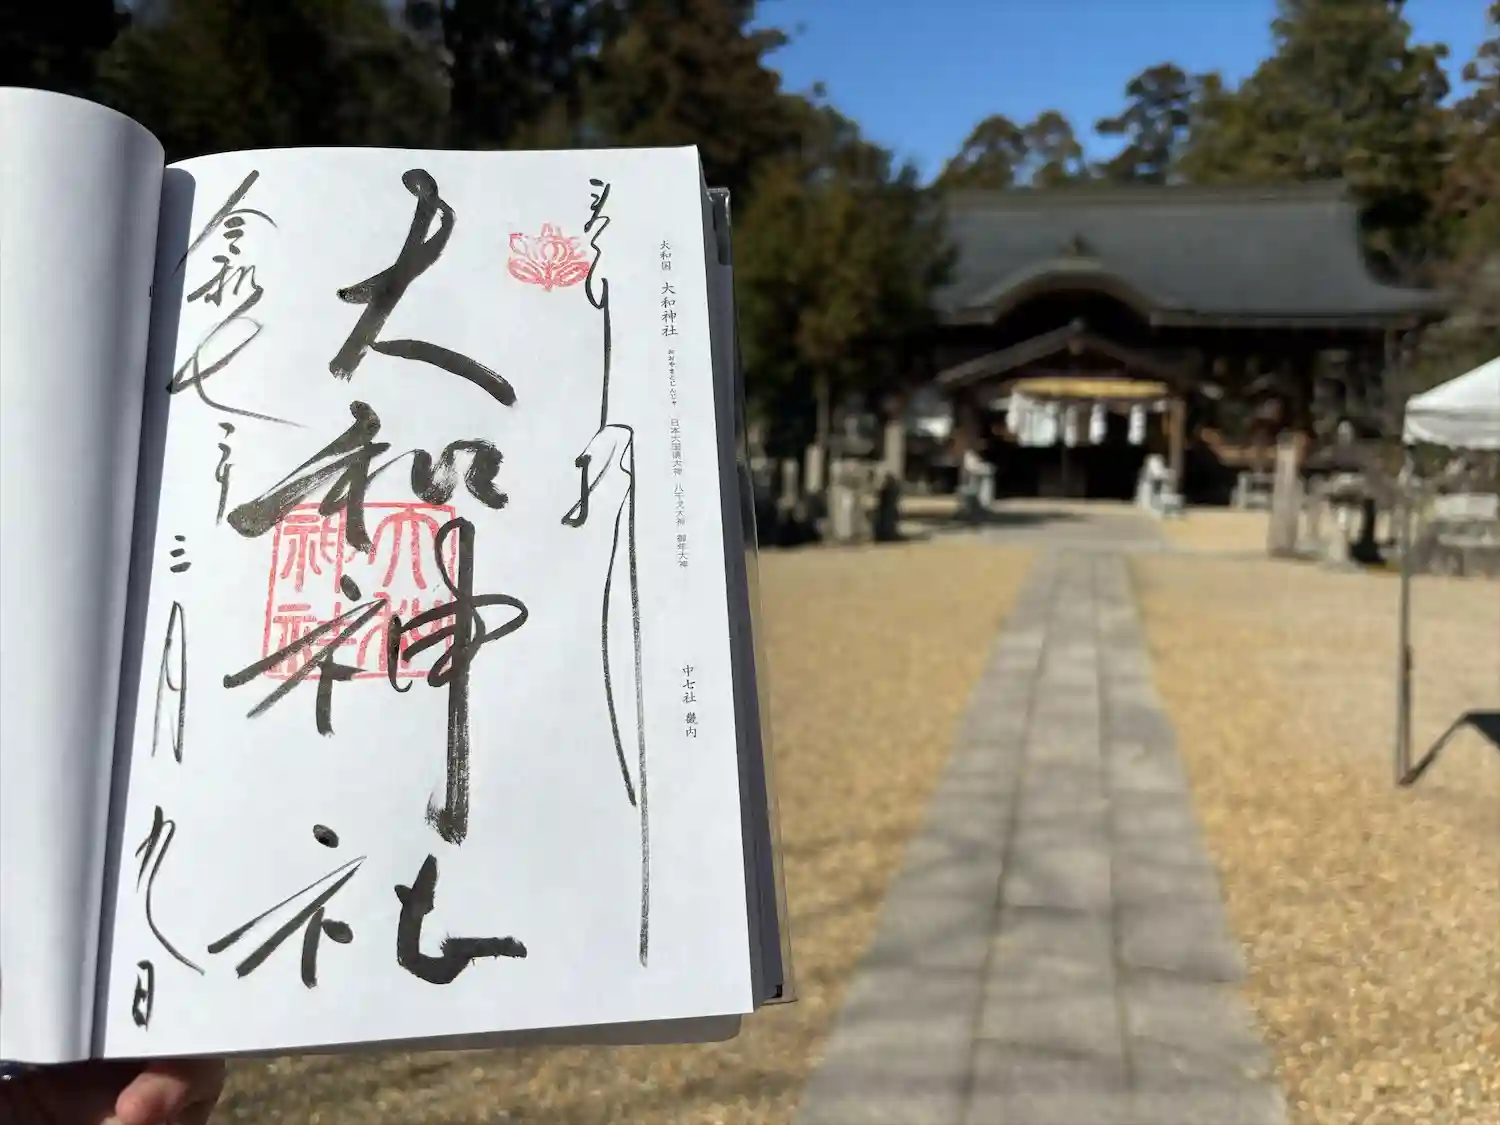 大和国 大和神社 おおやまとじんじゃ 日本大国魂大神 八千戈大神 御年大神 中七社 畿内
奉拝
大和神社
大和神社
令和七年三月九日